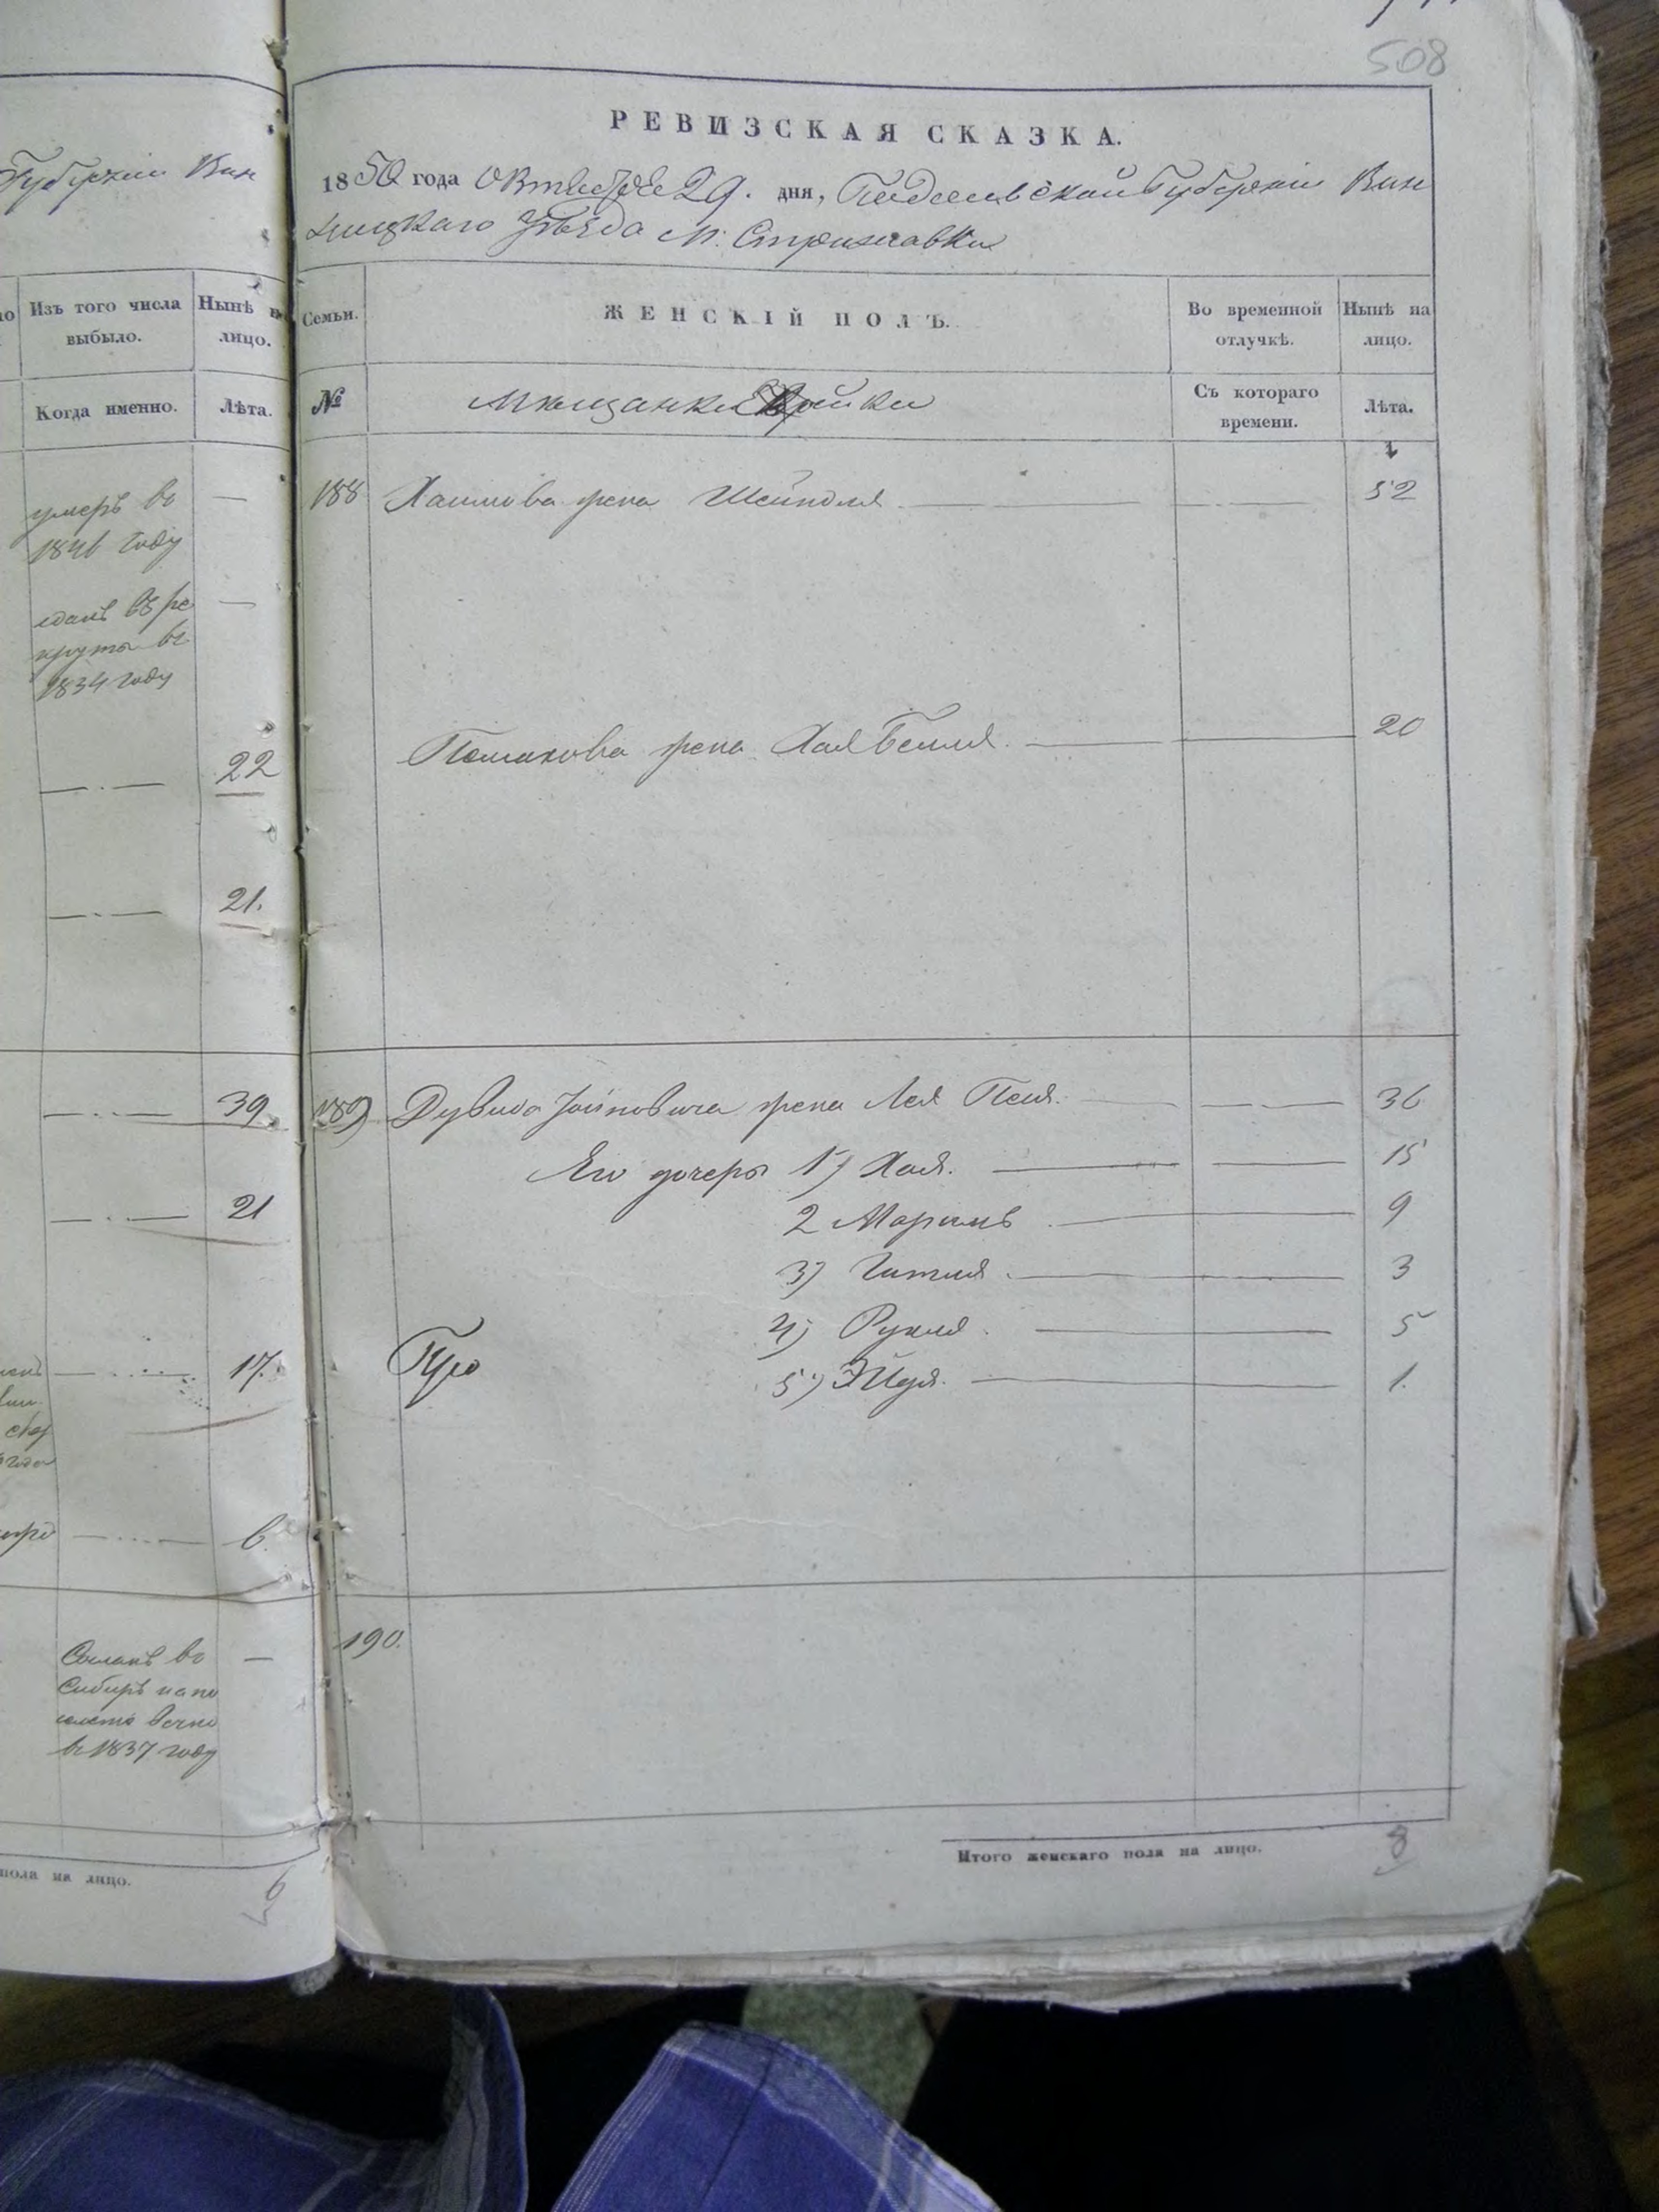 508
Губерніи Вин
Изъ того числа выбыло.
Нынѣ н лицо.
Когда именно.
Лѣта.
умеръ въ —
1846 году
сданъ въ ре —
круты въ
1834 году
22
21.
39
21
17.
6.
Сосланъ во —
Сибирь на по
вечно
въ 1837 году
пола на лицо.
6
РЕВИЗСКАЯ СКАЗКА.
1850 года Октября 29. дня, Подольской Губерніи Вин
ницкаго Уѣзда М. Стрижавки
Семьи.
ЖЕНСКІЙ ПОЛЪ.
Во временной отлучкѣ.
Нынѣ на лицо.
№
Мѣщанки Еврейки
Съ котораго времени.
Лѣта.
188 Хаимова жена Шейндля 52
жена Хая Бейля 20
189) Дувида жена Лея Песя. 36
Его дочеры 1) Хая. 15
2 Маримъ 9
3) Гитля 3
4) Рухля 5
5) Эйдя. 1.
190.
Итого женскаго пола на лицо.
8